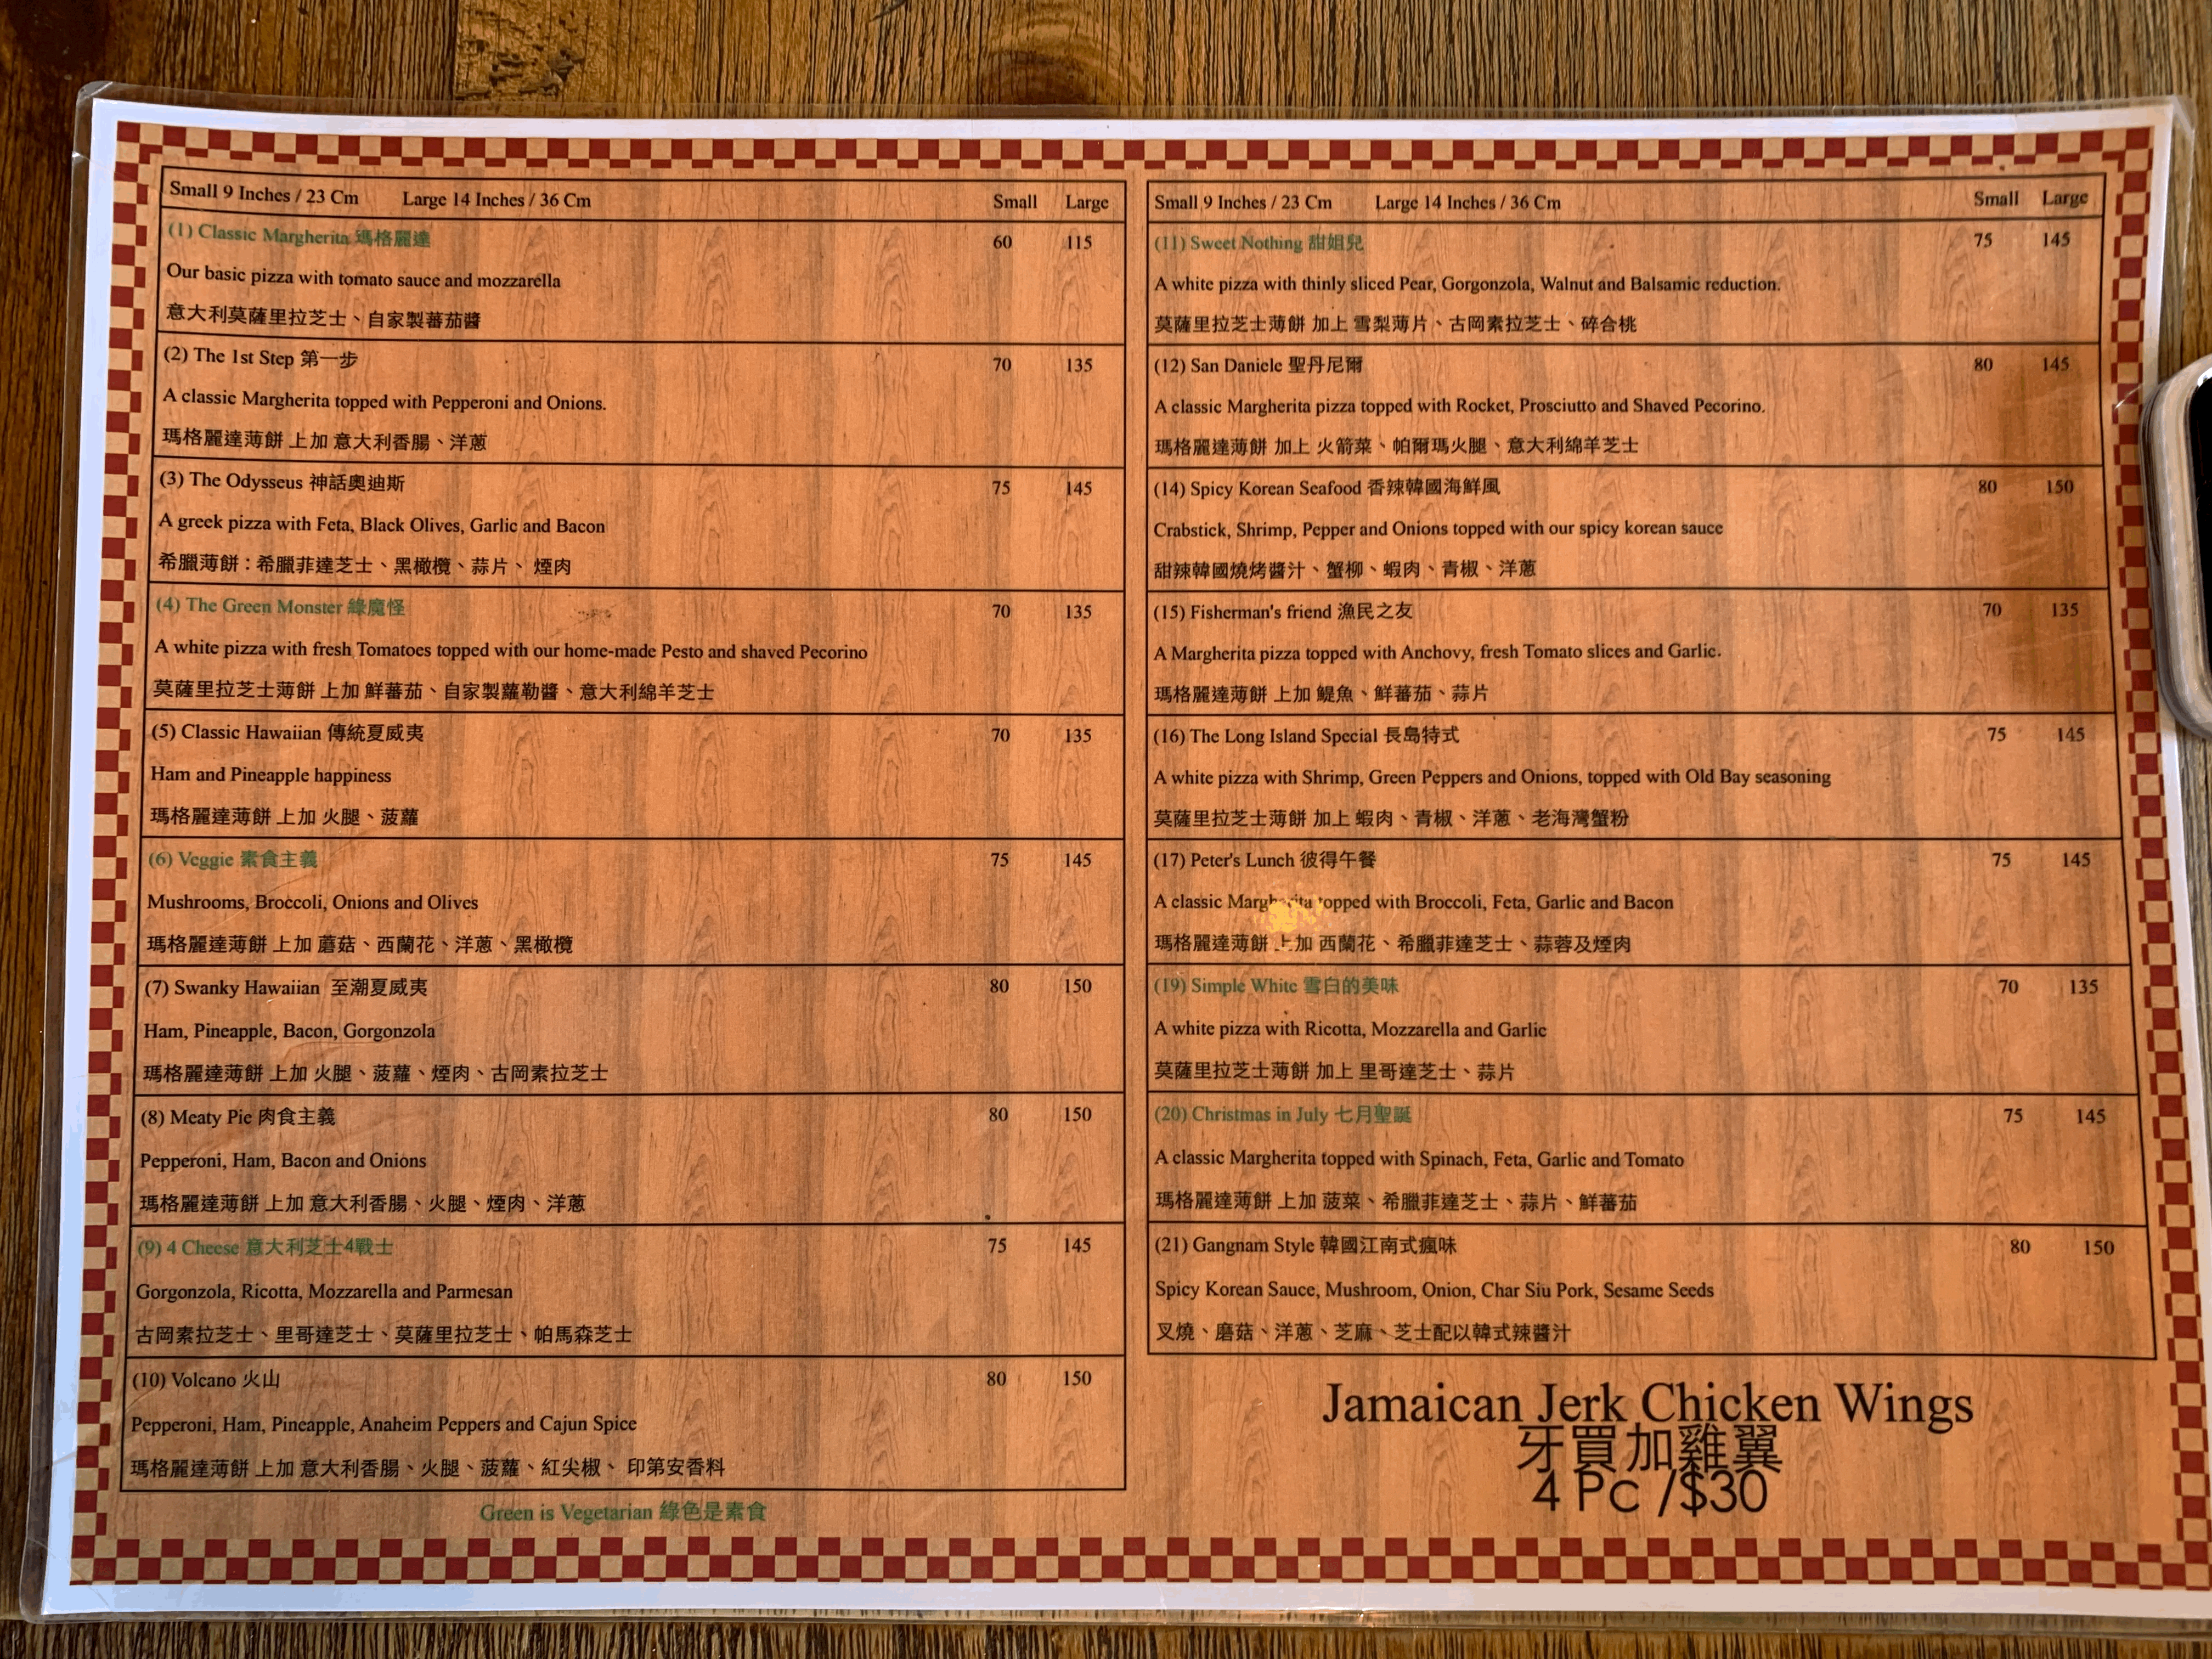 Small 9 Inches / 23 Cm Large 14 Inches / 36 Cm Small Large
(1) Classic Margherita 瑪格麗達 60 115
Our basic pizza with tomato sauce and mozzarella
意大利莫薩里拉芝士、自家製蕃茄醬
(2) The 1st Step 第一步 70 135
A classic Margherita topped with Pepperoni and Onions.
瑪格麗達薄餅 上加 意大利香腸、洋蔥
(3) The Odysseus 神話奧迪斯 75 145
A greek pizza with Feta, Black Olives, Garlic and Bacon
希臘薄餅：希臘菲達芝士、黑橄欖、蒜片、 煙肉
(4) The Green Monster 綠魔怪 70 135
A white pizza with fresh Tomatoes topped with our home-made Pesto and shaved Pecorino
莫薩里拉芝士薄餅 上加 鮮蕃茄、自家製蘿勒醬、意大利綿羊芝士
(5) Classic Hawaiian 傳統夏威夷 70 135
Ham and Pineapple happiness
瑪格麗達薄餅 上加 火腿、菠蘿
(6) Veggie 素食主義 75 145
Mushrooms, Broccoli, Onions and Olives
瑪格麗達薄餅 上加 蘑菇、西蘭花、洋蔥、黑橄欖
(7) Swanky Hawaiian 至潮夏威夷 80 150
Ham, Pineapple, Bacon, Gorgonzola
瑪格麗達薄餅 上加 火腿、菠蘿、煙肉、古岡素拉芝士
(8) Meaty Pie 肉食主義 80 150
Pepperoni, Ham, Bacon and Onions
瑪格麗達薄餅 上加 意大利香腸、火腿、煙肉、洋蔥
(9) 4 Cheese 意大利芝士4戰士 75 145
Gorgonzola, Ricotta, Mozzarella and Parmesan
古岡素拉芝士、里哥達芝士、莫薩里拉芝士、帕馬森芝士
(10) Volcano 火山 80 150
Pepperoni, Ham, Pineapple, Anaheim Peppers and Cajun Spice
瑪格麗達薄餅 上加 意大利香腸、火腿、菠蘿、紅尖椒、 印第安香料
Green is Vegetarian 綠色是素食
Small 9 Inches / 23 Cm Large 14 Inches / 36 Cm Small Large
(11) Sweet Nothing 甜姐兒 75 145
A white pizza with thinly sliced Pear, Gorgonzola, Walnut and Balsamic reduction.
莫薩里拉芝士薄餅 加上 雪梨薄片、古岡素拉芝士、碎合桃
(12) San Daniele 聖丹尼爾 80 145
A classic Margherita pizza topped with Rocket, Prosciutto and Shaved Pecorino.
瑪格麗達薄餅 加上 火箭菜、帕爾瑪火腿、意大利綿羊芝士
(14) Spicy Korean Seafood 香辣韓國海鮮風 80 150
Crabstick, Shrimp, Pepper and Onions topped with our spicy korean sauce
甜辣韓國燒烤醬汁、蟹柳、蝦肉、青椒、洋蔥
(15) Fisherman's friend 漁民之友 70 135
A Margherita pizza topped with Anchovy, fresh Tomato slices and Garlic.
瑪格麗達薄餅 上加 鯷魚、鮮蕃茄、蒜片
(16) The Long Island Special 長島特式 75 145
A white pizza with Shrimp, Green Peppers and Onions, topped with Old Bay seasoning
莫薩里拉芝士薄餅 加上 蝦肉、青椒、洋蔥、老海灣蟹粉
(17) Peter's Lunch 彼得午餐 75 145
A classic Margherita topped with Broccoli, Feta, Garlic and Bacon
瑪格麗達薄餅 上加 西蘭花、希臘菲達芝士、蒜蓉及煙肉
(19) Simple White 雪白的美味 70 135
A white pizza with Ricotta, Mozzarella and Garlic
莫薩里拉芝士薄餅 加上 里哥達芝士、蒜片
(20) Christmas in July 七月聖誕 75 145
A classic Margherita topped with Spinach, Feta, Garlic and Tomato
瑪格麗達薄餅 上加 菠菜、希臘菲達芝士、蒜片、鮮蕃茄
(21) Gangnam Style 韓國江南式瘋味 80 150
Spicy Korean Sauce, Mushroom, Onion, Char Siu Pork, Sesame Seeds
叉燒、磨菇、洋蔥、芝麻、芝士配以韓式辣醬汁
Jamaican Jerk Chicken Wings
牙買加雞翼
4 Pc /$30